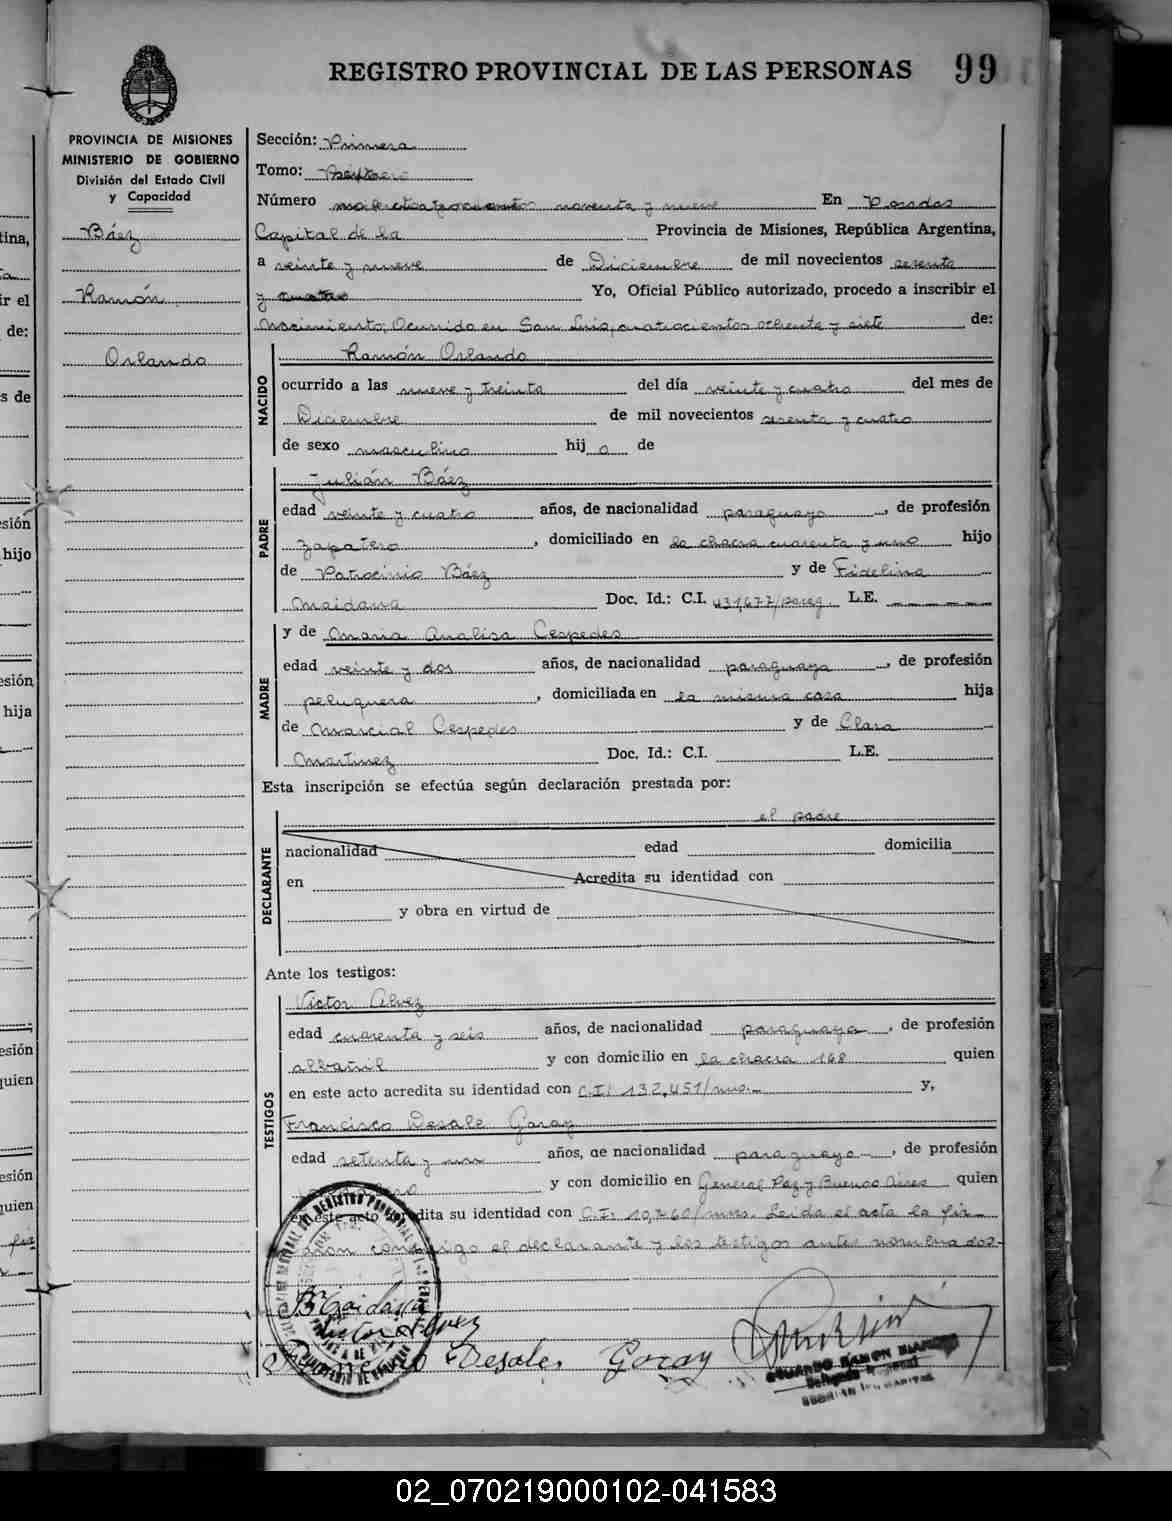 REGISTRO PROVINCIAL DE LAS PERSONAS 99
PROVINCIA DE MISIONES
MINISTERIO DE GOBIERNO
División del Estado Civil
y Capacidad
Báez
Ramón
Orlando
Sección: Primera
Tomo:
Número noventa y nueve En Posadas
Capital de la Provincia de Misiones, República Argentina,
a veinte y nueve de Diciembre de mil novecientos sesenta
y cuatro Yo, Oficial Público autorizado, procedo a inscribir el
Nacimiento, Ocurrido en San Luis, cuatrocientos ochenta y siete de:
NACIDO
Ramón Orlando
ocurrido a las nueve y treinta del día veinte y cuatro del mes de
Diciembre de mil novecientos sesenta y cuatro
de sexo masculino hij o de
PADRE
Julián Báez
edad veinte y cuatro años, de nacionalidad paraguayo, de profesión
zapatero, domiciliado en la chacra cuarenta y uno hijo
de Patrocinio Báez y de Fidelina
Maidana Doc. Id.: C.I. 431,677/parag. L.E.
MADRE
y de Maria Analisa Cespedes
edad veinte y dos años, de nacionalidad paraguaya, de profesión
peluquera, domiciliada en la misma casa hija
de Marcial Cespedes y de Clara
Martinez Doc. Id.: C.I. L.E.
Esta inscripción se efectúa según declaración prestada por:
DECLARANTE
el padre
nacionalidad edad domicilia
en Acredita su identidad con
y obra en virtud de
Ante los testigos:
TESTIGOS
Victor Alvez
edad cuarenta y seis años, de nacionalidad paraguaya, de profesión
albañil y con domicilio en la chacra 168 quien
en este acto acredita su identidad con C.I: 132,451/mnes. y,
Francisco Desale Garay
edad setenta y un años, de nacionalidad paraguayo, de profesión
y con domicilio en General Paz y Buenos Aires quien
en este acto acredita su identidad con C.I: 10,760/mns. Leida el acta la fir-
maron conmigo el declarante y los testigos antes nombrados-
Victor Alvez
Desale Garay
EDUARDO RAMON
Delegado
02_070219000102-041583